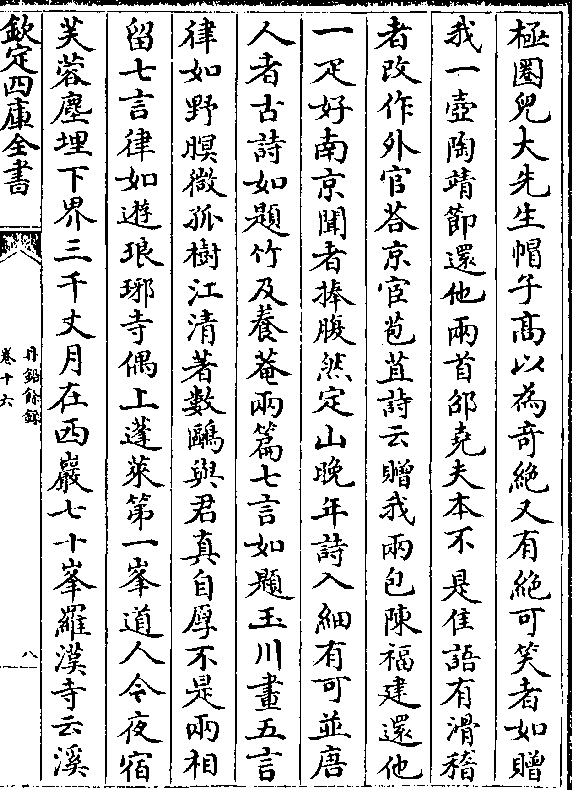 極圏兒大先生帽子髙以為奇絶又有絶可笑者如贈
我一壺陶靖節還他兩首邵堯夫本不是佳語有滑稽
者改作外官荅京官苞苴詩云贈我兩包陳福建還他
一疋好南京聞者捧腹然定山晚年詩入細有可並唐
人者古詩如題竹及養菴兩篇七言如題玉川畫五言
律如野暝微孤樹江清著數鷗與君真自厚不是兩相
留七言律如遊琅琊寺偶上蓬萊第一峯道人今夜宿
芙蓉塵埋下界三千丈月在西巖七十峯羅漢寺云溪
欽定四庫全書
丹鉛餘録
卷十六
八